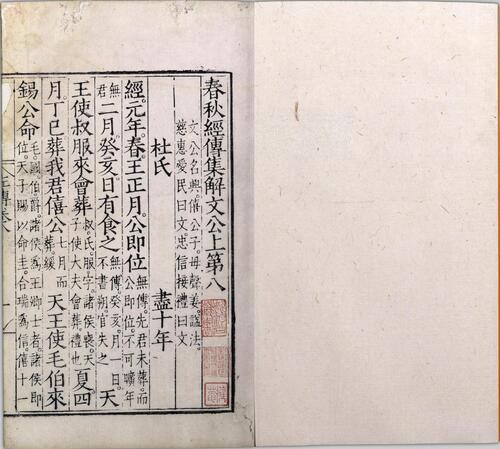 春秋經傳集解文公上第八
文公名興。僖公子。母聲姜。謚法。
慈惠愛民曰文。忠信接禮曰文
杜氏 盡十年
經。元年。春。王正月。公即位無傳。先君未葬。而公即位。不可曠年
無君二月。癸亥。日有食之無傳。癸亥。月一日。不書朔。官失之天
王使叔服來會葬叔。氏。服。字。諸侯喪。天子使大夫會葬。禮也夏四
月。丁巳。葬我君僖公七月而葬。緩天王使毛伯來
錫公命毛。國。伯。爵。諸侯爲王卿士者。諸侯即位。天子賜以命圭。合瑞爲信。僖十一